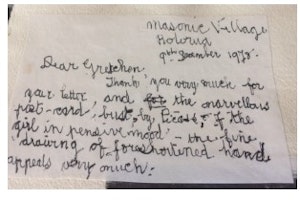 Masonic Village
9th December 1978.
Dear Gretchen.
Thank you very much for
your letter, and for the marvellous
post-card, bust, by Picasso, of the
girl in pensive mood - the fine
drawing of foreshortened hand
appeals very much.